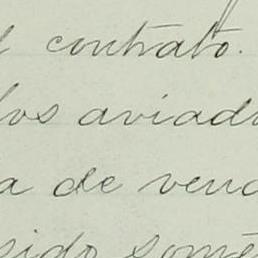 l contrato.
los aviado
a de vend
sido somé